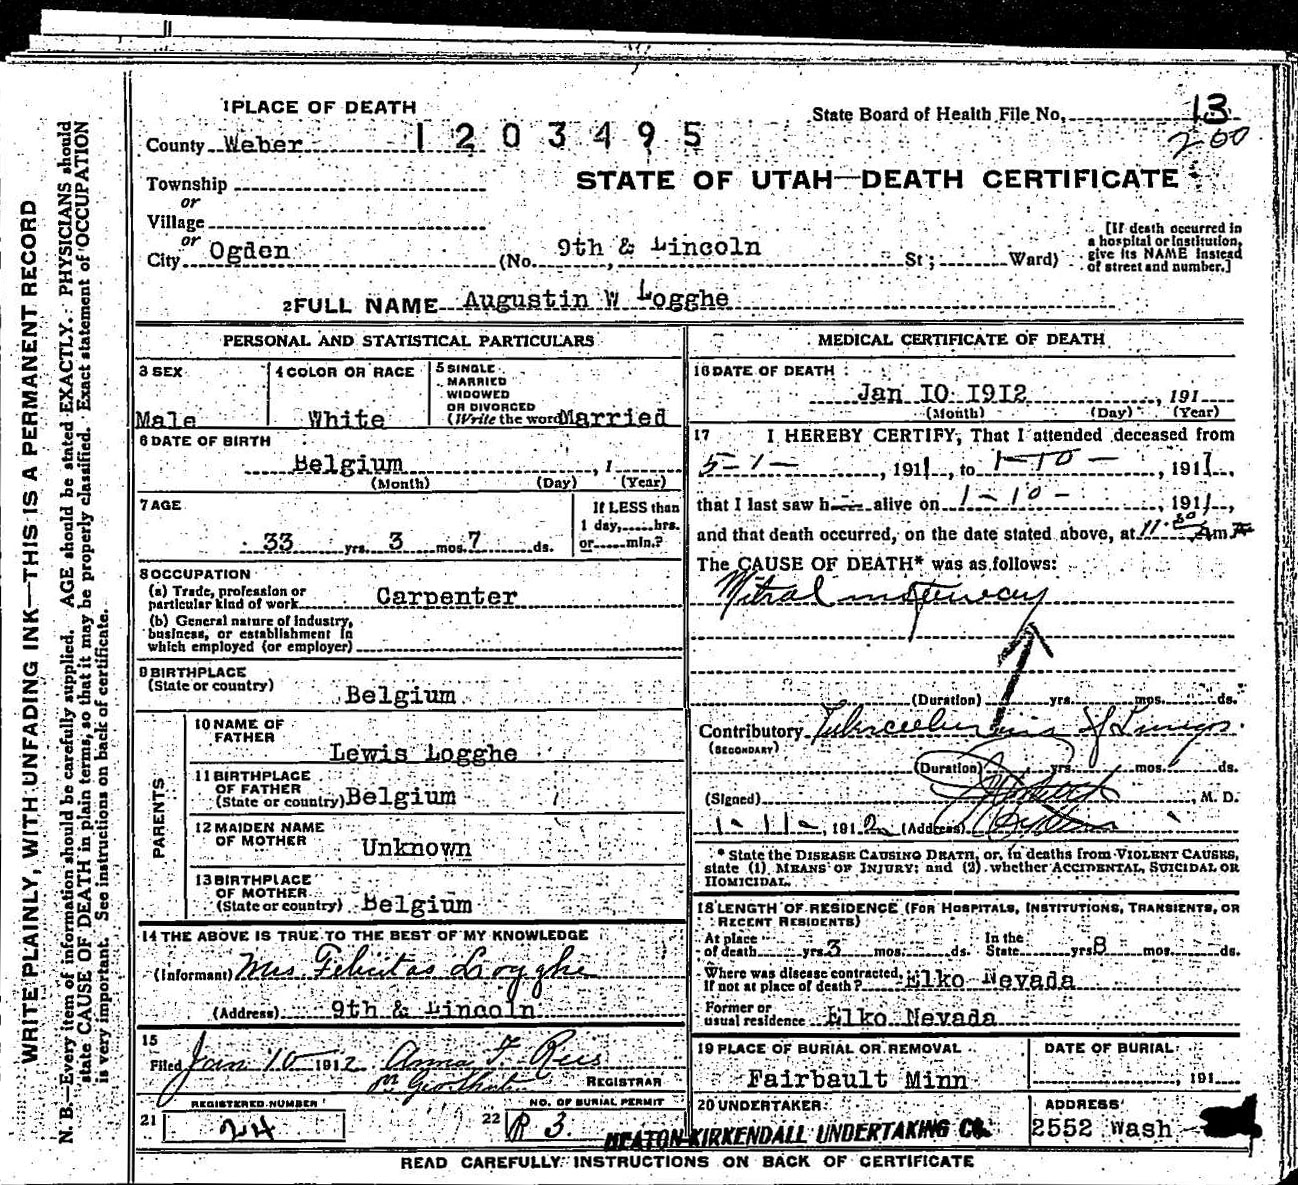 1 PLACE OF DEATH
State Board of Health File No. 13
County Weber 1203495
200
Township
STATE OF UTAH—DEATH CERTIFICATE
or
Village
or
City Ogden (No. 9th & Lincoln St; Ward)
[If death occurred in
a hospital or institution,
give its NAME instead
of street and number.]
2 FULL NAME Augustin W Logghe
PERSONAL AND STATISTICAL PARTICULARS
3 SEX
Male
4 COLOR OR RACE
White
5 SINGLE
MARRIED
WIDOWED
OR DIVORCED
(Write the word) Married
6 DATE OF BIRTH
Belgium , 1
(Month) (Day) (Year)
7 AGE
33 yrs. 3 mos. 7 ds.
If LESS than
1 day, hrs.
or min.?
8 OCCUPATION
(a) Trade, profession or
particular kind of work Carpenter
(b) General nature of industry,
business, or establishment in
which employed (or employer)
9 BIRTHPLACE
(State or country)
Belgium
PARENTS
10 NAME OF
FATHER
Lewis Logghe
11 BIRTHPLACE
OF FATHER
(State or country) Belgium
12 MAIDEN NAME
OF MOTHER
Unknown
13 BIRTHPLACE
OF MOTHER
(State or country) Belgium
14 THE ABOVE IS TRUE TO THE BEST OF MY KNOWLEDGE
(Informant) Mrs Felicitas Logghe
(Address) 9th & Lincoln
15
Filed Jan 10 1912 Anna F. Reis
REGISTRAR
REGISTERED NUMBER
21 24
NO. OF BURIAL PERMIT
22 R 3.
MEDICAL CERTIFICATE OF DEATH
16 DATE OF DEATH
Jan 10 1912 , 191
(Month) (Day) (Year)
17 I HEREBY CERTIFY, That I attended deceased from
5-1- , 1911, to 1-10- , 191
that I last saw h alive on 1-10- , 191
and that death occurred, on the date stated above, at 11.30 Am
The CAUSE OF DEATH* was as follows:
Mitral
(Duration) yrs. mos. ds.
Contributory Tuberculosis of Lungs
(SECONDARY)
(Duration) yrs. mos. ds.
(Signed) , M. D.
1-11- , 1912 (Address)
* State the DISEASE CAUSING DEATH, or, in deaths from VIOLENT CAUSES,
state (1) MEANS OF INJURY; and (2) whether ACCIDENTAL, SUICIDAL OR
HOMICIDAL.
18 LENGTH OF RESIDENCE (FOR HOSPITALS, INSTITUTIONS, TRANSIENTS, OR
RECENT RESIDENTS)
At place
of death yrs. 3 mos. ds. In the
State yrs 8 mos. ds.
Where was disease contracted,
If not at place of death? Elko Nevada
Former or
usual residence Elko Nevada
19 PLACE OF BURIAL OR REMOVAL
Fairbault Minn
DATE OF BURIAL
, 191
20 UNDERTAKER
HEATON-KIRKENDALL UNDERTAKING CO.
ADDRESS
2552 Wash
READ CAREFULLY INSTRUCTIONS ON BACK OF CERTIFICATE
WRITE PLAINLY, WITH UNFADING INK—THIS IS A PERMANENT RECORD
N. B.—Every item of information should be carefully supplied. AGE should be stated EXACTLY. PHYSICIANS should
state CAUSE OF DEATH in plain terms, so that it may be properly classified. Exact statement of OCCUPATION
is very important. See instructions on back of certificate.